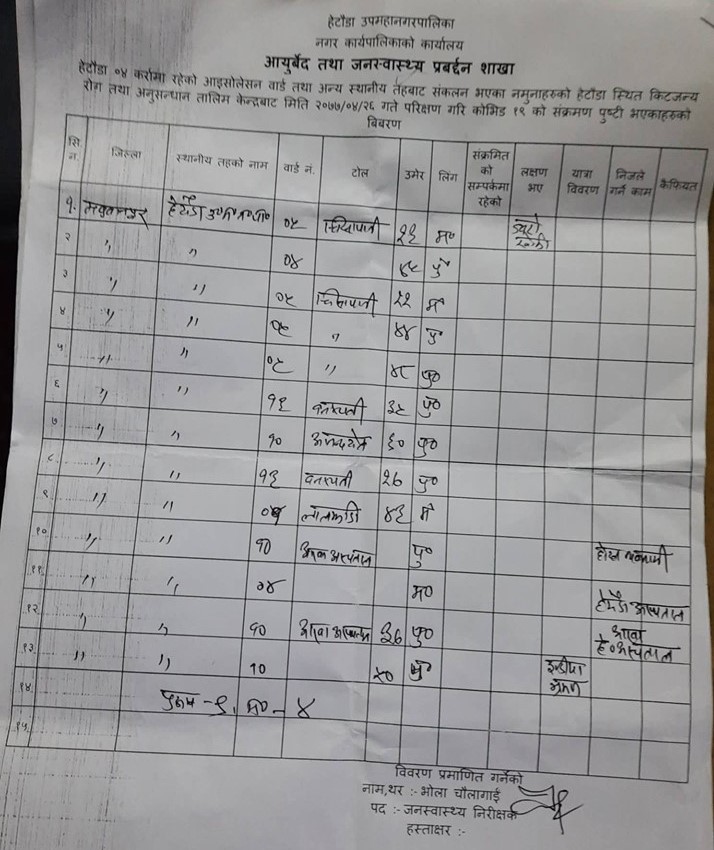 हेटौडा उपमहानगरपालिका
नगर कार्यपालिकाको कार्यालय
आयुर्बेद तथा जनस्वास्थ्य प्रबर्द्दन शाखा
हेटौडा ०४ कर्रामा रहेको आइसोलेसन वार्ड तथा अन्य स्थानीय तहबाट संकलन भएका नमुनाहरुको हेटौडा स्थित किटजन्य
रोग तथा अनुसन्धान तालिम केन्द्रबाट मिति २०७७/०४/२६ गते परिक्षण गरि कोभिड १९ को संक्रमण पुष्टी भएकाहरुको
बिबरण
सि. न. जिल्ला स्थानीय तहको नाम वार्ड नं. टोल उमेर लिंग संक्रमित को सम्पर्कमा रहेको लक्षण भए यात्रा विवरण निजले गर्ने काम कैफियत
१. मकवानपुर हेटौडा उ०म०न०पा० ०५ म०
२ " " ०४ ४५ पु०
३ " " ०५ म०
४ " " ०५ " ४४ पु०
५ " " ०५ " ४८ पु०
६ " " १६ वनस्पती ३५ पु०
७ " " १० ६० पु०
८ " " १६ वनस्पती २७ पु०
९ " " ४६ म०
१० " " १० पु०
११ " " ०४ म० हेटौडा अस्पताल
१२ " " १० ३७ पु० हे०अस्पताल
१३ " " १० ५० पु० इन्डीया
१४ पुरुष - ९, म० - ४
१५
विवरण प्रमाणित गर्नेको
नाम,थर :- भोला चौलागाई
पद :- जनस्वास्थ्य निरीक्षक
हस्ताक्षर :-